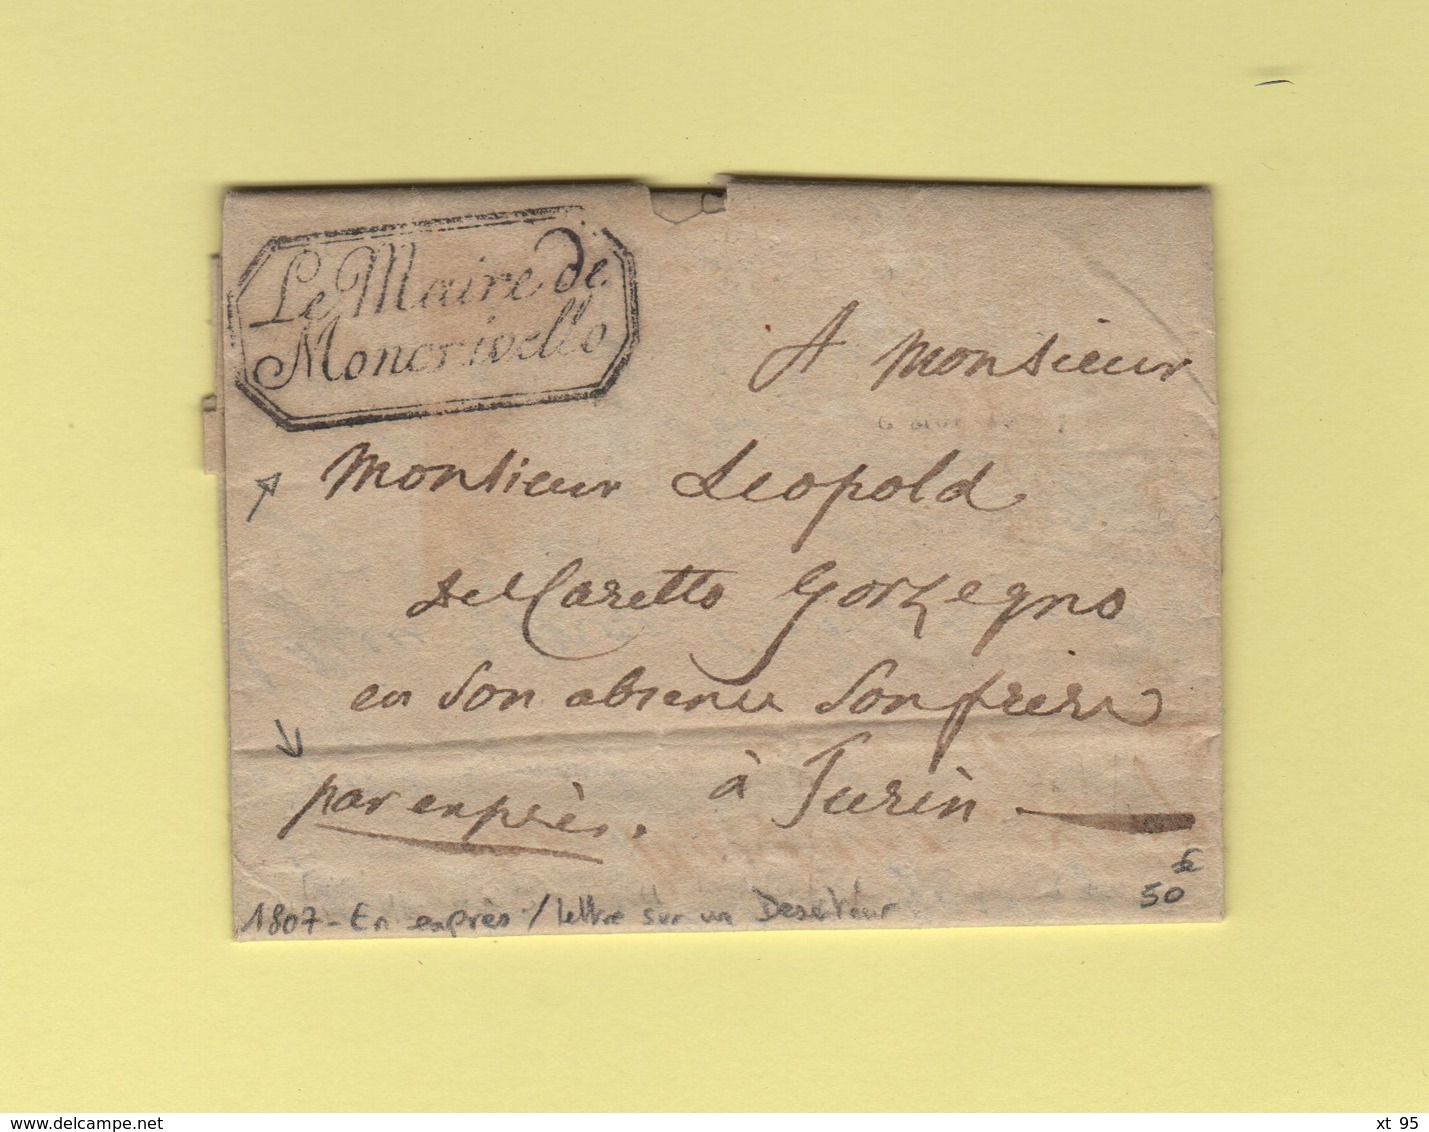 Le Maire de
Moncrivello
A Monsieur
Monsieur Leopold
Del Caretto Gorzegno
en son absence son frere
par exprès. à Turin
50
1807 - En exprès / lettre sur un Deserteur
www.delcampe.net
xt 95